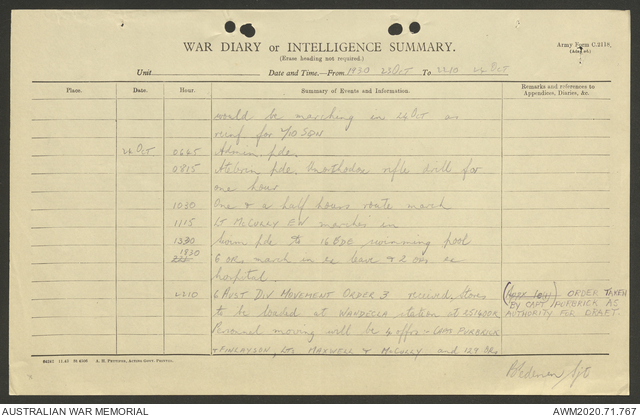 WAR DIARY or INTELLIGENCE SUMMARY.
(Erase heading not required.)
Army Form C.2118.
Unit Date and Time.—From 1930 23 Oct To 2210 24 Oct
Place. Date. Hour. Summary of Events and Information. Remarks and references to Appendices, Diaries, &c.
would be marching in 26 Oct as
reinf for 7/10 SQN
24 Oct 0645 Admin pde.
0815 pde. Unorthodox rifle drill for
one hour
1030 One & a half hours route march
1115 Lt McCulley EW marches in
1330 Swim pde to 16 BDE swimming pool
1830 6 ORs march in ex leave & 2 ORs ex
hospital.
2210 6 AUST DIV MOVEMENT ORDER 3 received. Stores
to be loaded at WANDECLA station at 251600K
Personnel moving will be 4 offrs - CAPT PURBRICK
& FINLAYSON, Lts MAXWELL & McCulley and 129 ORs
ORDER TAKEN
BY CAPT PURBRICK AS
AUTHORITY FOR DRAFT.
AUSTRALIAN WAR MEMORIAL
AWM2020.71.767